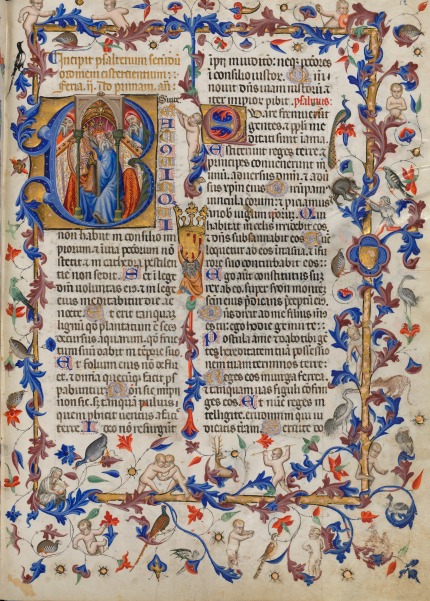 Incipit psalterium secundū
ordinem cistertientium:
feria ii. Ad primam. an̄.
Beatus
non habiit in consilio im
piorum et in via peccatorum nō
stetit: et in cathedra pestilēn
tie non sedit. Set in lege
dn̄i voluntas eius: et in lege
eius meditabitur die ac
nocte. Et erit tanquam
lignū qd̄ plantatum ē secus
decursus aquarum: qd̄ fruc
tum suū dabit in tempore suo.
Et folium eius nō deflu
et: et omnia quecūqz faciet
pabuntur. Non sic impij
non sic: set tamquam puluis
quem proicit ventus a facie
terre. Ideo nō resurgunt
impij in iudicio: neqz peccatores
in consilio iustorum.
novit dn̄s viam iustorum: et
iter impiorum peribit. psalmus.
Quare fremuerūt
gentes: et populi me
ditati sunt inania.
Astiterunt reges terre: et
principes convenerunt in
unū: adversus dn̄m: et ad
versus xpm eius.
vincula eorum: et proiciamus
a nobis iugum ipsorum. Qui
habitat in celis irridebit eos:
et dn̄s subsannabit eos.
loquetur ad eos in ira sua: et in fu
rore suo conturbabit eos.
Ego autem constitutus sum
rex ab eo: super syon montem
sanctum eius predicans preceptum eius.
Dn̄s dixit ad me filius meus
es tu: ego hodie genui te.
Postula a me et dabo tibi gen
tes hereditatem tuā: et possessio
nem tuam terminos terre.
Reges eos in virga ferrea:
et tanquam vas figuli confrin
ges eos. Et nunc reges in
telligite: erudimini qui iu
dicatis terram. Servite dn̄o